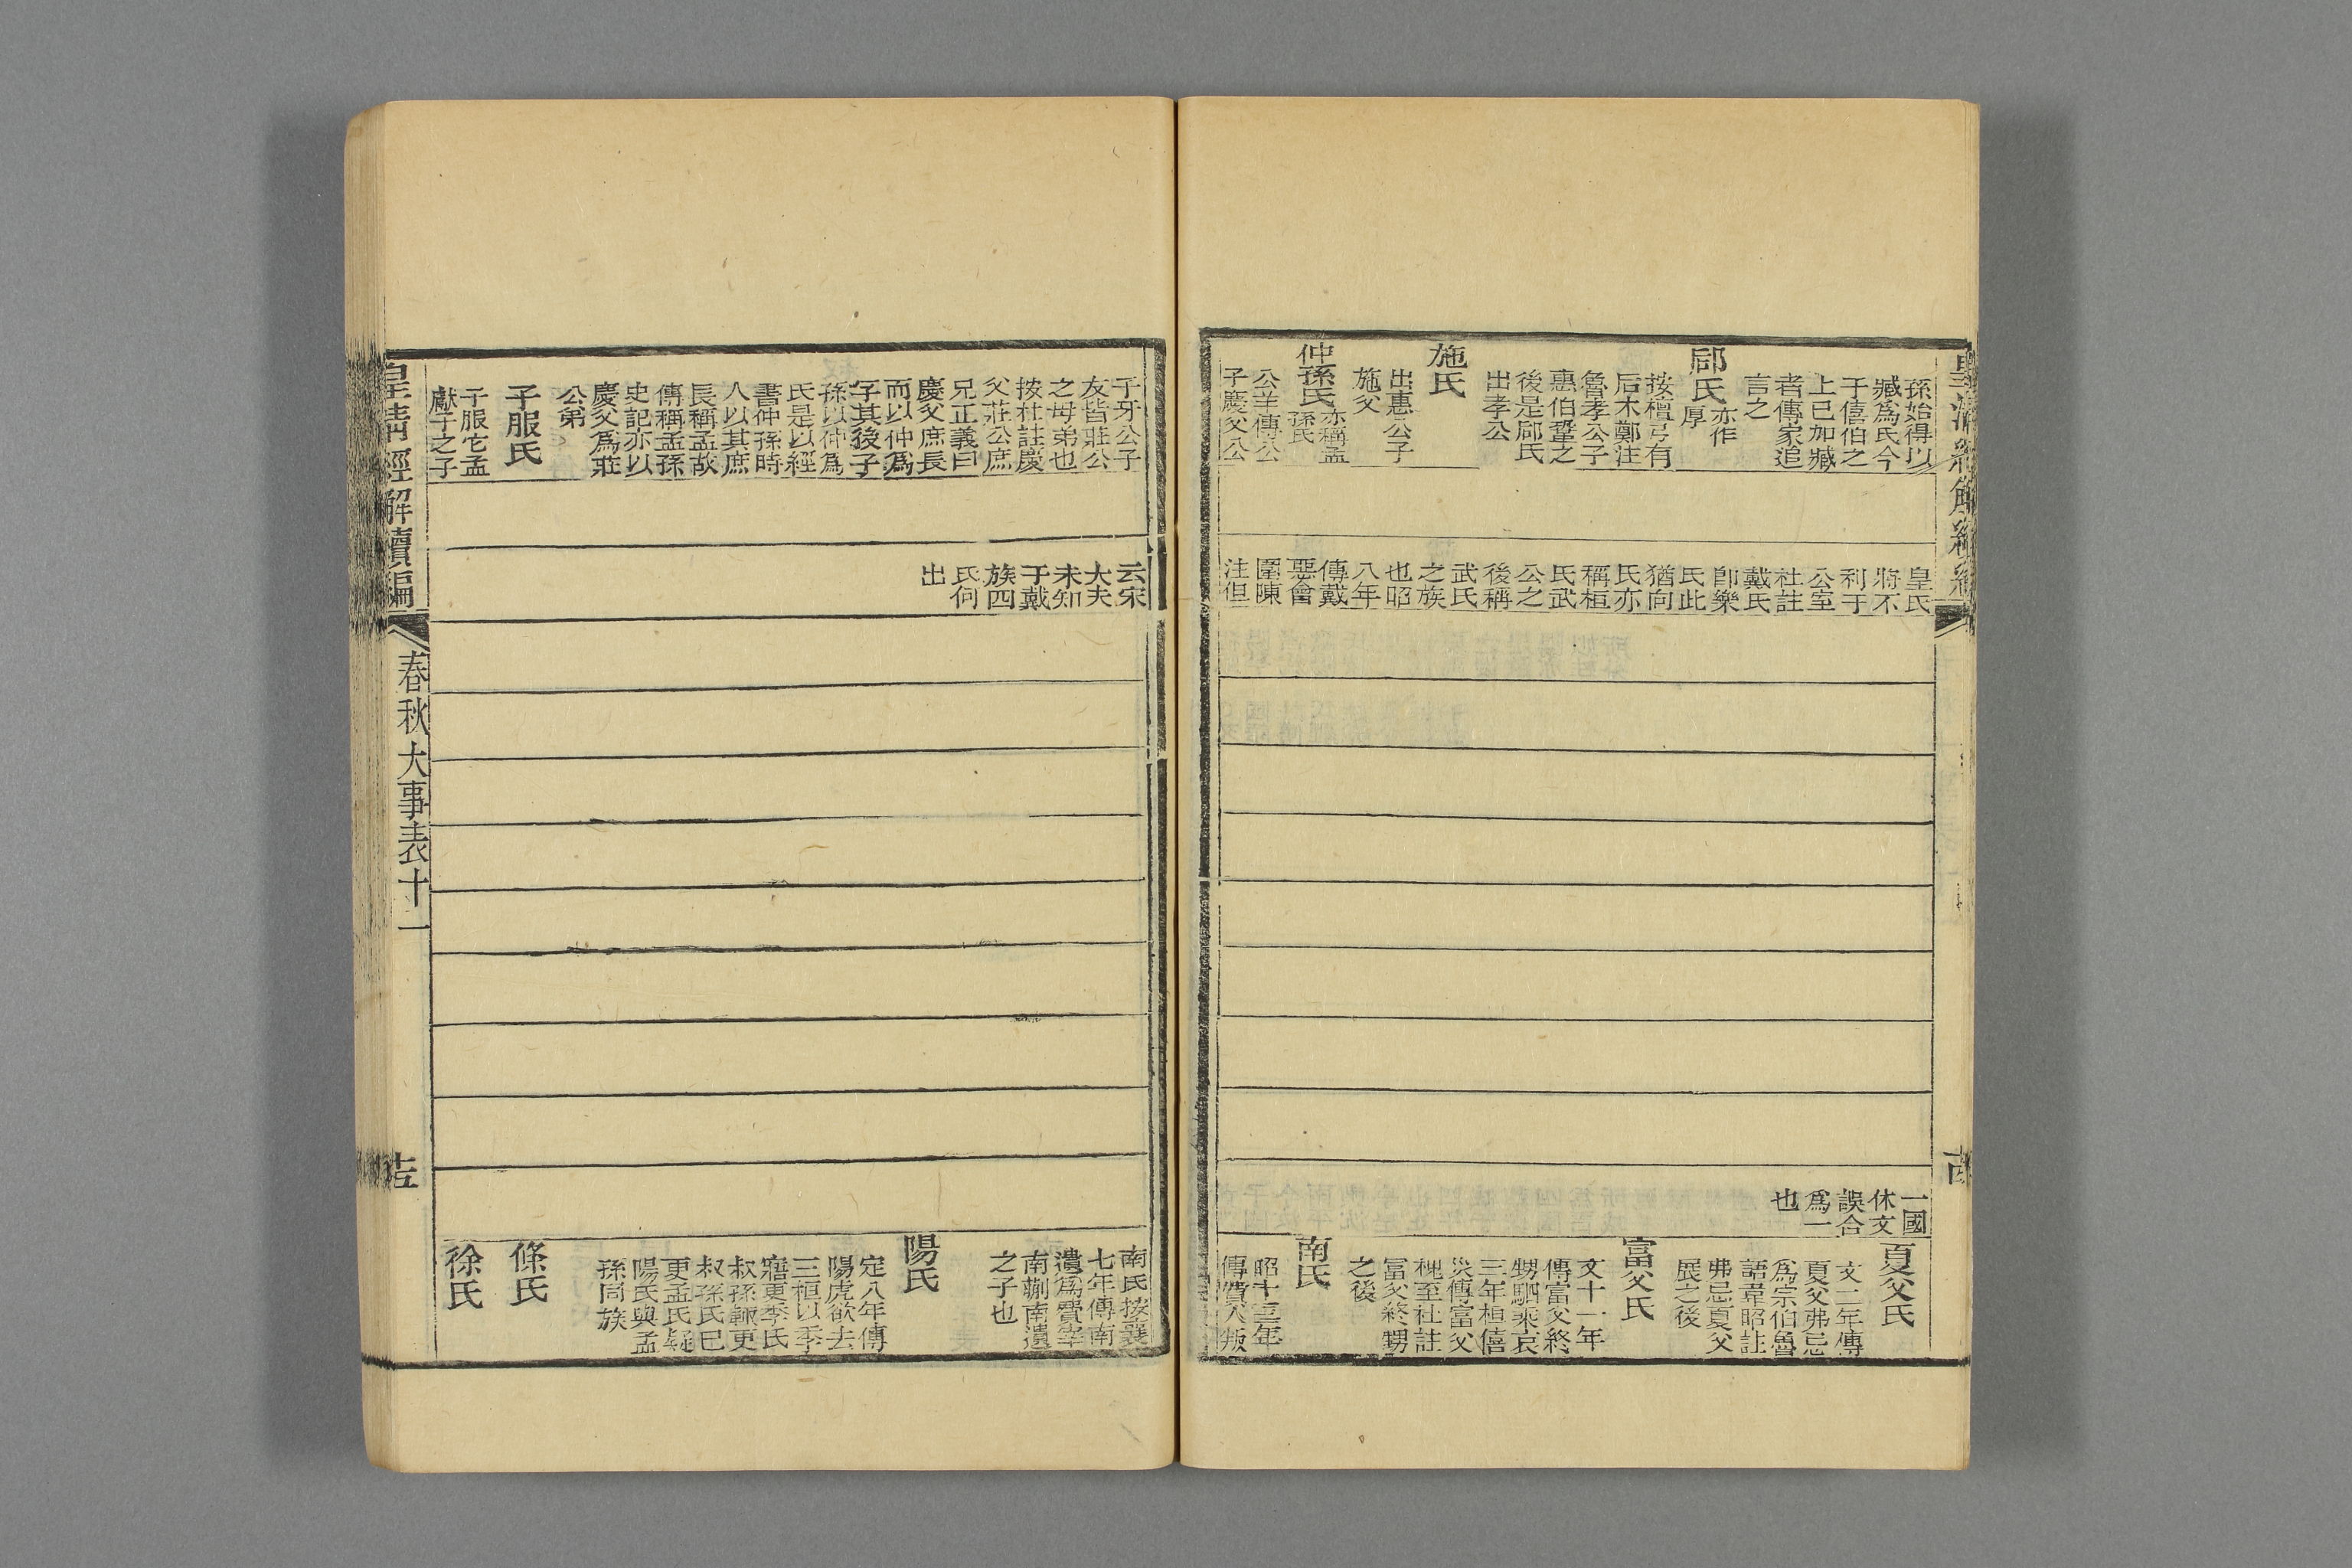 孫始得以
臧爲氏今
于僖伯之
上已加臧
者傳家追
言之
郈氏亦作厚
按檀弓有
后木鄭注
魯孝公子
惠伯鞏之
後是郈氏
出孝公
施氏
出惠公子
施父
仲孫氏亦稱孟孫氏
公羊傳公
子慶父公
皇氏
將不
利于
公室
杜註
戴氏
卽樂
氏此
猶向
氏亦
稱桓
氏武
公之
後稱
武氏
之族
也昭
八年
傳戴
惡會
圍陳
注但
一國
休文
誤合
爲一
也
夏父氏
文二年傳
夏父弗忌
爲宗伯魯
語韋昭註
弗忌夏父
展之後
富父氏
文十一年
傳富父終
甥駟乘哀
三年桓僖
災傳富父
槐至杜註
富父終甥
之後
南氏
昭十三年
傳費人叛
子牙公子
友皆莊公
之母弟也
按杜註慶
父莊公庶
兄正義曰
慶父庶長
而以仲爲
字其後子
孫以仲爲
氏是以經
書仲孫時
人以其庶
長稱孟故
傳稱孟孫
史記亦以
慶父爲莊
公弟
子服氏
子服它孟
獻子之子
云宋
大夫
未知
于戴
族四
氏何
出
南氏按襄
七年傳南
遺爲費宰
南蒯南遺
之子也
陽氏
定八年傳
陽虎欲去
三桓以季
寤更季氏
叔孫輒更
叔孫氏已
更孟氏疑
陽氏與孟
孫同族
條氏
徐氏
皇清經解續編
春秋大事表十二